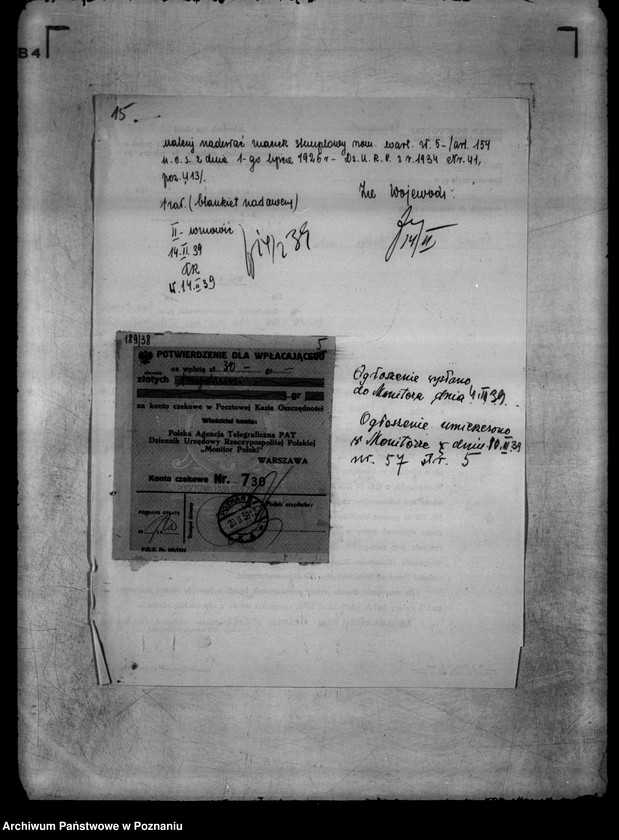 B4
15.
należy nadesłać znaczek stemplowy nom. wart. zł. 5 -/art. 154
u.o.s. z dnia 1-go lipca 1926 r - Dz.U.R.P. z r. 1934 Nr. 41,
poz. 413/.
zał. (blankiet nadawczy)
Za Wojewodę:
II - wznowić
14.II.39
14/II
W. 14.II 39
189/38
5
POTWIERDZENIE DLA WPŁACAJĄCEGO
na wpłatę zł. 30 - gr -
złotych
gr
na konto czekowe w Pocztowej Kasie Oszczędności
Właściciel konta:
Polska Agencja Telegraficzna PAT
Dziennik Urzędowy Rzeczypospolitej Polskiej
„Monitor Polski”
WARSZAWA
Konto czekowe Nr. 730
POZNAŃ
20 II 39
Ogłoszenie wysłano
do Monitora dnia 4.III 39.
Ogłoszenie umieszczono
w Monitorze z dnia 10.III 39
nr. 57 str. 5
Archiwum Państwowe w Poznaniu